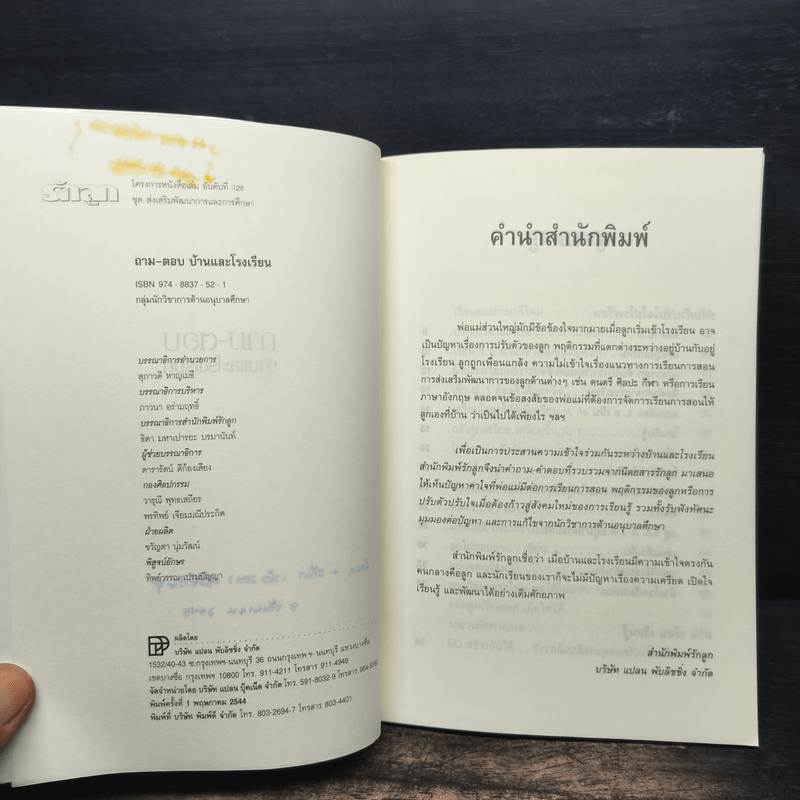 รักลูก
โครงการหนังสือเล่ม อันดับที่ 128
ชุด ส่งเสริมพัฒนาการและการศึกษา
ถาม-ตอบ บ้านและโรงเรียน
ISBN 974 - 8837 - 52 - 1
กลุ่มนักวิชาการด้านอนุบาลศึกษา
บรรณาธิการอำนวยการ
สุภาวดี หาญเมธี
บรรณาธิการบริหาร
ภาวนา อร่ามฤทธิ์
บรรณาธิการสำนักพิมพ์รักลูก
ธิดา มหาเปารยะ บรมานันท์
ผู้ช่วยบรรณาธิการ
ดารารัตน์ ดีก้องเสียง
กองศิลปกรรม
วารุณี พุทธเสถียร
พรทิพย์ เจียมมณีประกิต
ฝ่ายผลิต
ขวัญตา นุ่มวัฒน์
พิสูจน์อักษร
ทิพย์วรรณ เปรมปัญญา
ผลิตโดย
บริษัท แปลน พับลิชชิ่ง จำกัด
1532/40-43 ซ.กรุงเทพฯ-นนทบุรี 36 ถนนกรุงเทพฯ-นนทบุรี แขวงบางซื่อ
เขตบางซื่อ กรุงเทพฯ 10800 โทร. 911-4211 โทรสาร 911-4948
จัดจำหน่ายโดย บริษัท แปลน บุ๊คเน็ต จำกัด โทร. 591-8032-9 โทรสาร
พิมพ์ครั้งที่ 1 พฤษภาคม 2544
พิมพ์ที่ บริษัท พิมพ์ดี จำกัด โทร. 803-2694-7 โทรสาร 803-4401
คำนำสำนักพิมพ์
พ่อแม่ส่วนใหญ่มักมีข้อข้องใจมากมายเมื่อลูกเริ่มเข้าโรงเรียน อาจ
เป็นปัญหาเรื่องการปรับตัวของลูก พฤติกรรมที่แตกต่างระหว่างอยู่บ้านกับอยู่
โรงเรียน ลูกถูกเพื่อนแกล้ง ความไม่เข้าใจเรื่องแนวทางการเรียนการสอน
การส่งเสริมพัฒนาการของลูกด้านต่างๆ เช่น ดนตรี ศิลปะ กีฬา หรือการเรียน
ภาษาอังกฤษ ตลอดจนข้อสงสัยของพ่อแม่ที่ต้องการจัดการเรียนการสอนให้
ลูกเองที่บ้าน ว่าเป็นไปได้เพียงไร ฯลฯ
เพื่อเป็นการประสานความเข้าใจร่วมกันระหว่างบ้านและโรงเรียน
สำนักพิมพ์รักลูกจึงนำคำถาม-คำตอบที่รวบรวมจากนิตยสารรักลูก มาเสนอ
ให้เห็นปัญหาคาใจที่พ่อแม่มีต่อการเรียนการสอน พฤติกรรมของลูกหรือการ
ปรับตัวปรับใจเมื่อต้องก้าวสู่สังคมใหม่ของการเรียนรู้ รวมทั้งรับฟังทัศนะ
มุมมองต่อปัญหา และการแก้ไขจากนักวิชาการด้านอนุบาลศึกษา
สำนักพิมพ์รักลูกเชื่อว่า เมื่อบ้านและโรงเรียนมีความเข้าใจตรงกัน
คนกลางคือลูก และนักเรียนของเราก็จะไม่มีปัญหาเรื่องความเครียด เปิดใจ
เรียนรู้ และพัฒนาได้อย่างเต็มศักยภาพ
สำนักพิมพ์รักลูก
บริษัท แปลน พับลิชชิ่ง จำกัด